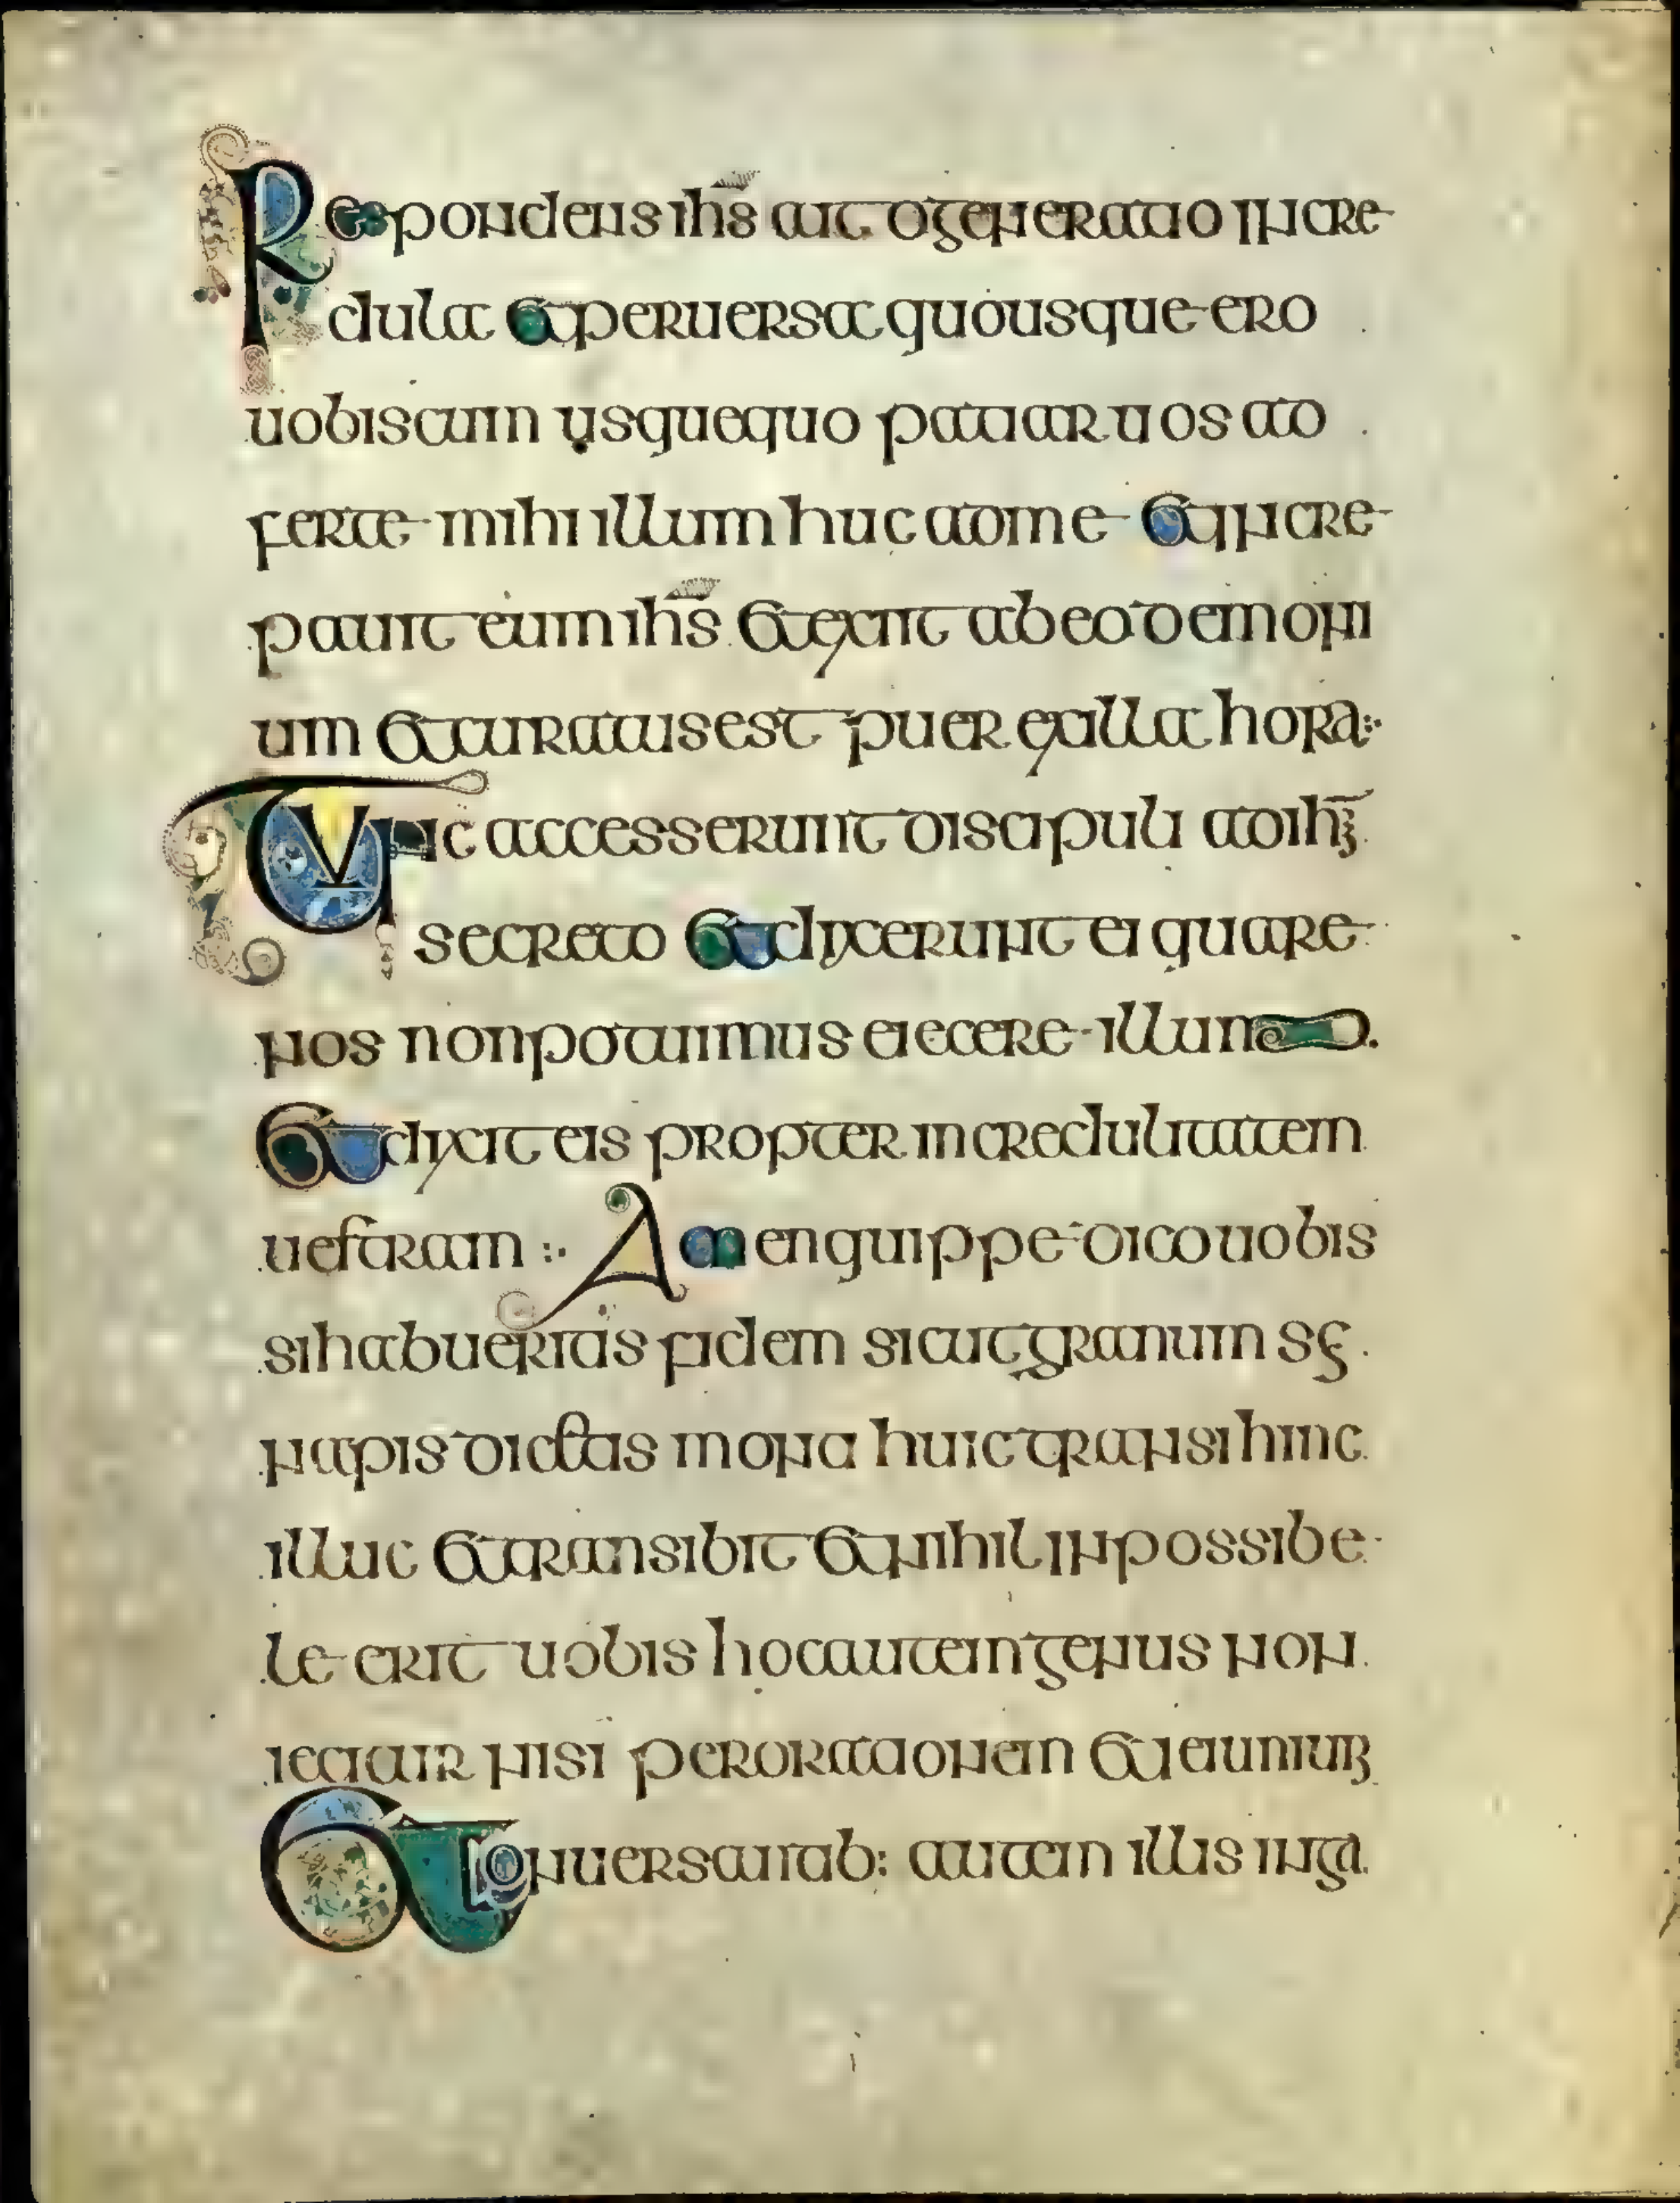 Respondens ihs ait o generatio incre
dula et peruersa quousque ero
uobiscum usquequo patiar uos ad
ferte mihi illum huc ad me et incre
pauit eum ihs et exiit ab eo demoni
um et curatus est puer ex illa hora:·
Tunc accesserunt discipuli ad ihm
secreto et dixerunt ei quare
nos non potuimus eiecere illum.
Et dixit eis propter incredulitatem
uestram :· Amen quippe dico uobis
si habueritis fidem sicut granum se
napis dicetis monti huic transi hinc
illuc et transibit et nihil inpossibe
le erit uobis hoc autem genus non
iecitur nisi per orationem et ieiunium
Et conuersantib: autem illis in ga